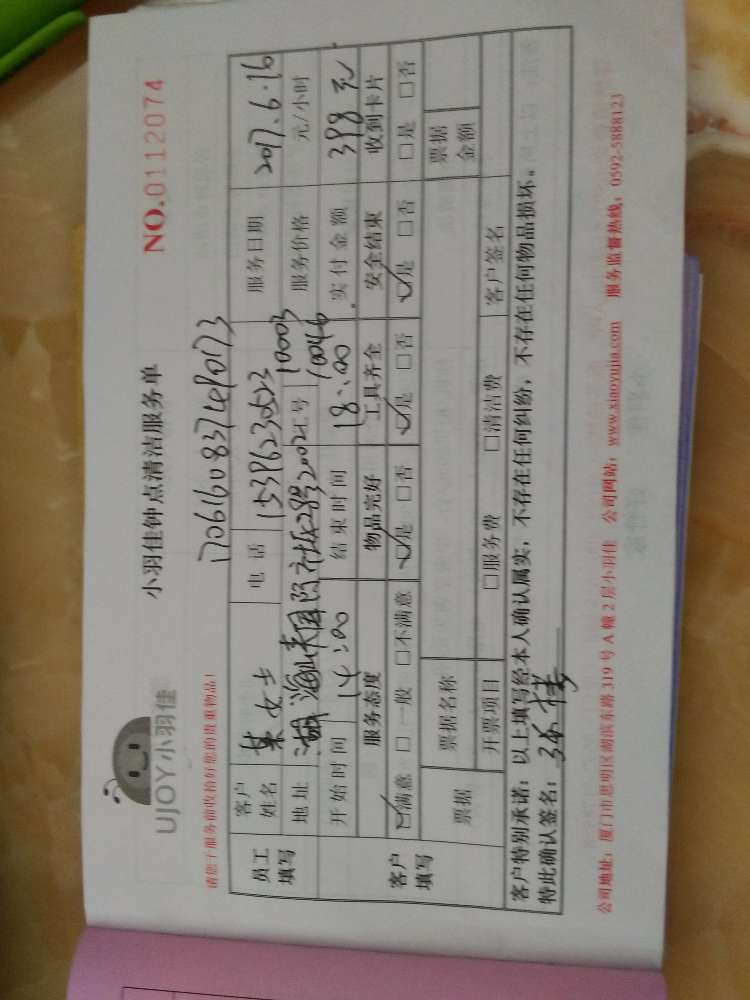 UJOY小羽佳
小羽佳钟点清洁服务单
NO.0112074
请您于服务前收拾好您的贵重物品!
员工填写
客户姓名 女士 电话 服务日期 2017.6.16
地址 工号 10003 10046 服务价格 元/小时
开始时间 14:00 结束时间 18:00 实付金额 398元
客户填写
服务态度 物品完好 工具齐全 安全结束 收到卡片
☑满意 □一般 □不满意 ☑是 □否 ☑是 □否 ☑是 □否 □是 □否
票据 票据名称 票据金额
开票项目 □服务费 □清洁费 客户签名
客户特别承诺:以上填写经本人确认属实,不存在任何纠纷,不存在任何物品损坏。
特此确认签名:
公司地址:厦门市思明区湖滨东路319号A幢2层小羽佳 公司网站:www.xiaoyujia.com 服务监督热线:0592-5888123